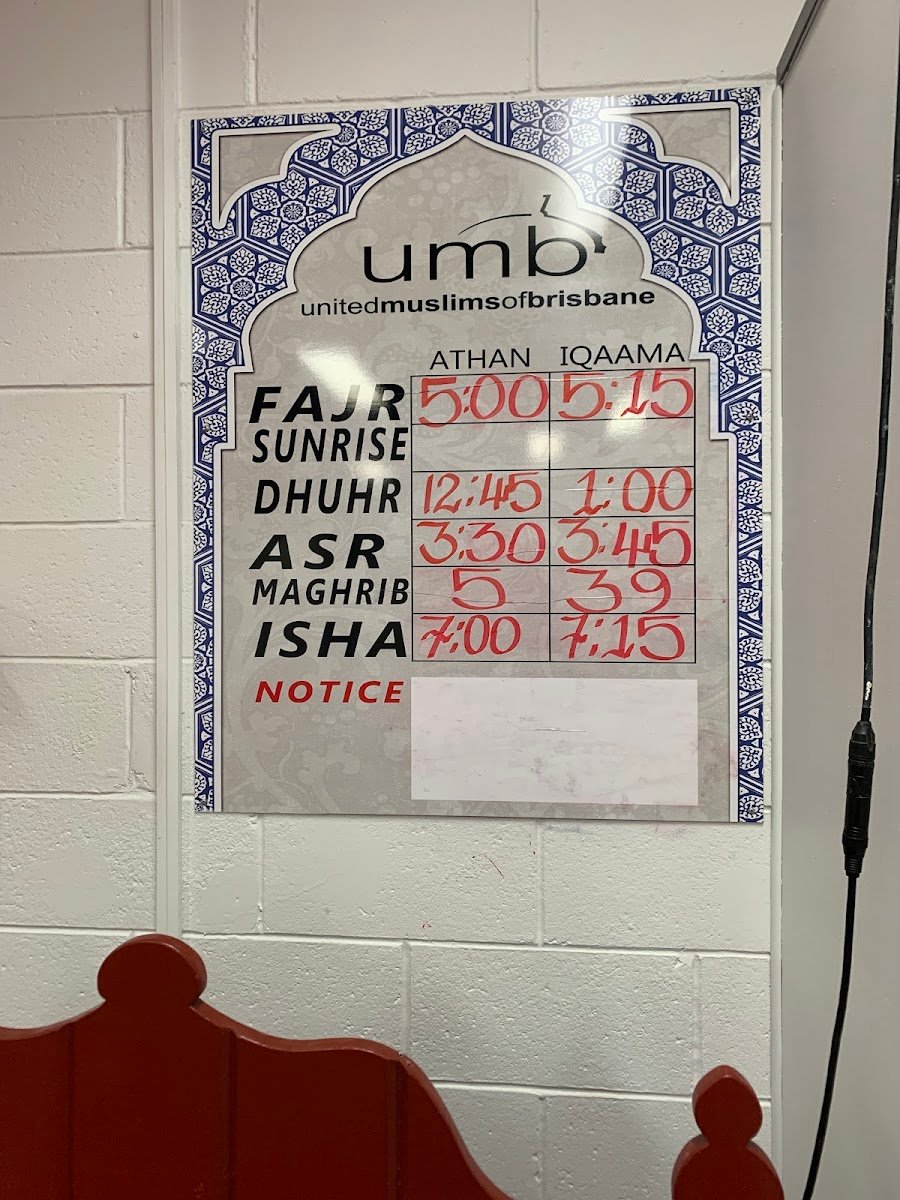 umb
unitedmuslimsofbrisbane
ATHAN IQAAMA
FAJR 5:00 5:15
SUNRISE
DHUHR 12:45 1:00
ASR 3:30 3:45
MAGHRIB 5 39
ISHA 7:00 7:15
NOTICE